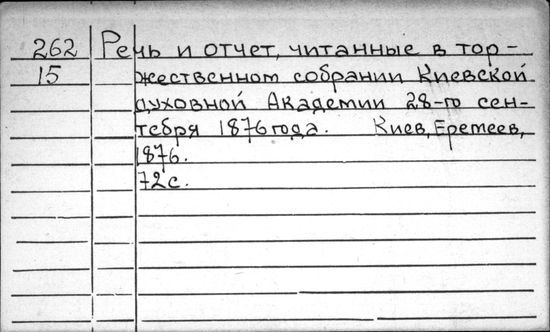 262 Речь и отчет, читанные в тор-
15 жественном собрании Киевской
духовной Академии 28-го сен-
тебря 1876 года. Киев, Еремеев,
1876.
72 с.